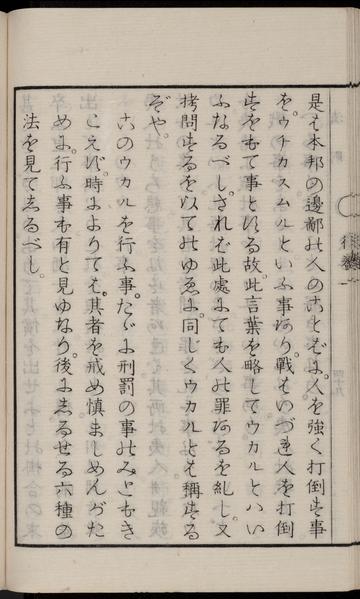 是は本邦の邊鄙の人のことばに。人を強く打倒す事
を。ウチカスムルといふ事あり。戰もいづれ人を打倒
すをもて事とする故。此言葉を略してウカルとハい
ふなるべし。されば此處にても人の罪あるを糺し。又
拷問するを以てのゆゑに。同じくウカルとは稱する
ぞや。
六のウカルを行ふ事。たゞに刑罰の事のみにもき
こえず。時によりても。其者を戒め愼ましめんがた
めに。行ふ事も有と見ゆなり。後にしるせる六種の
法を見てしるべし。